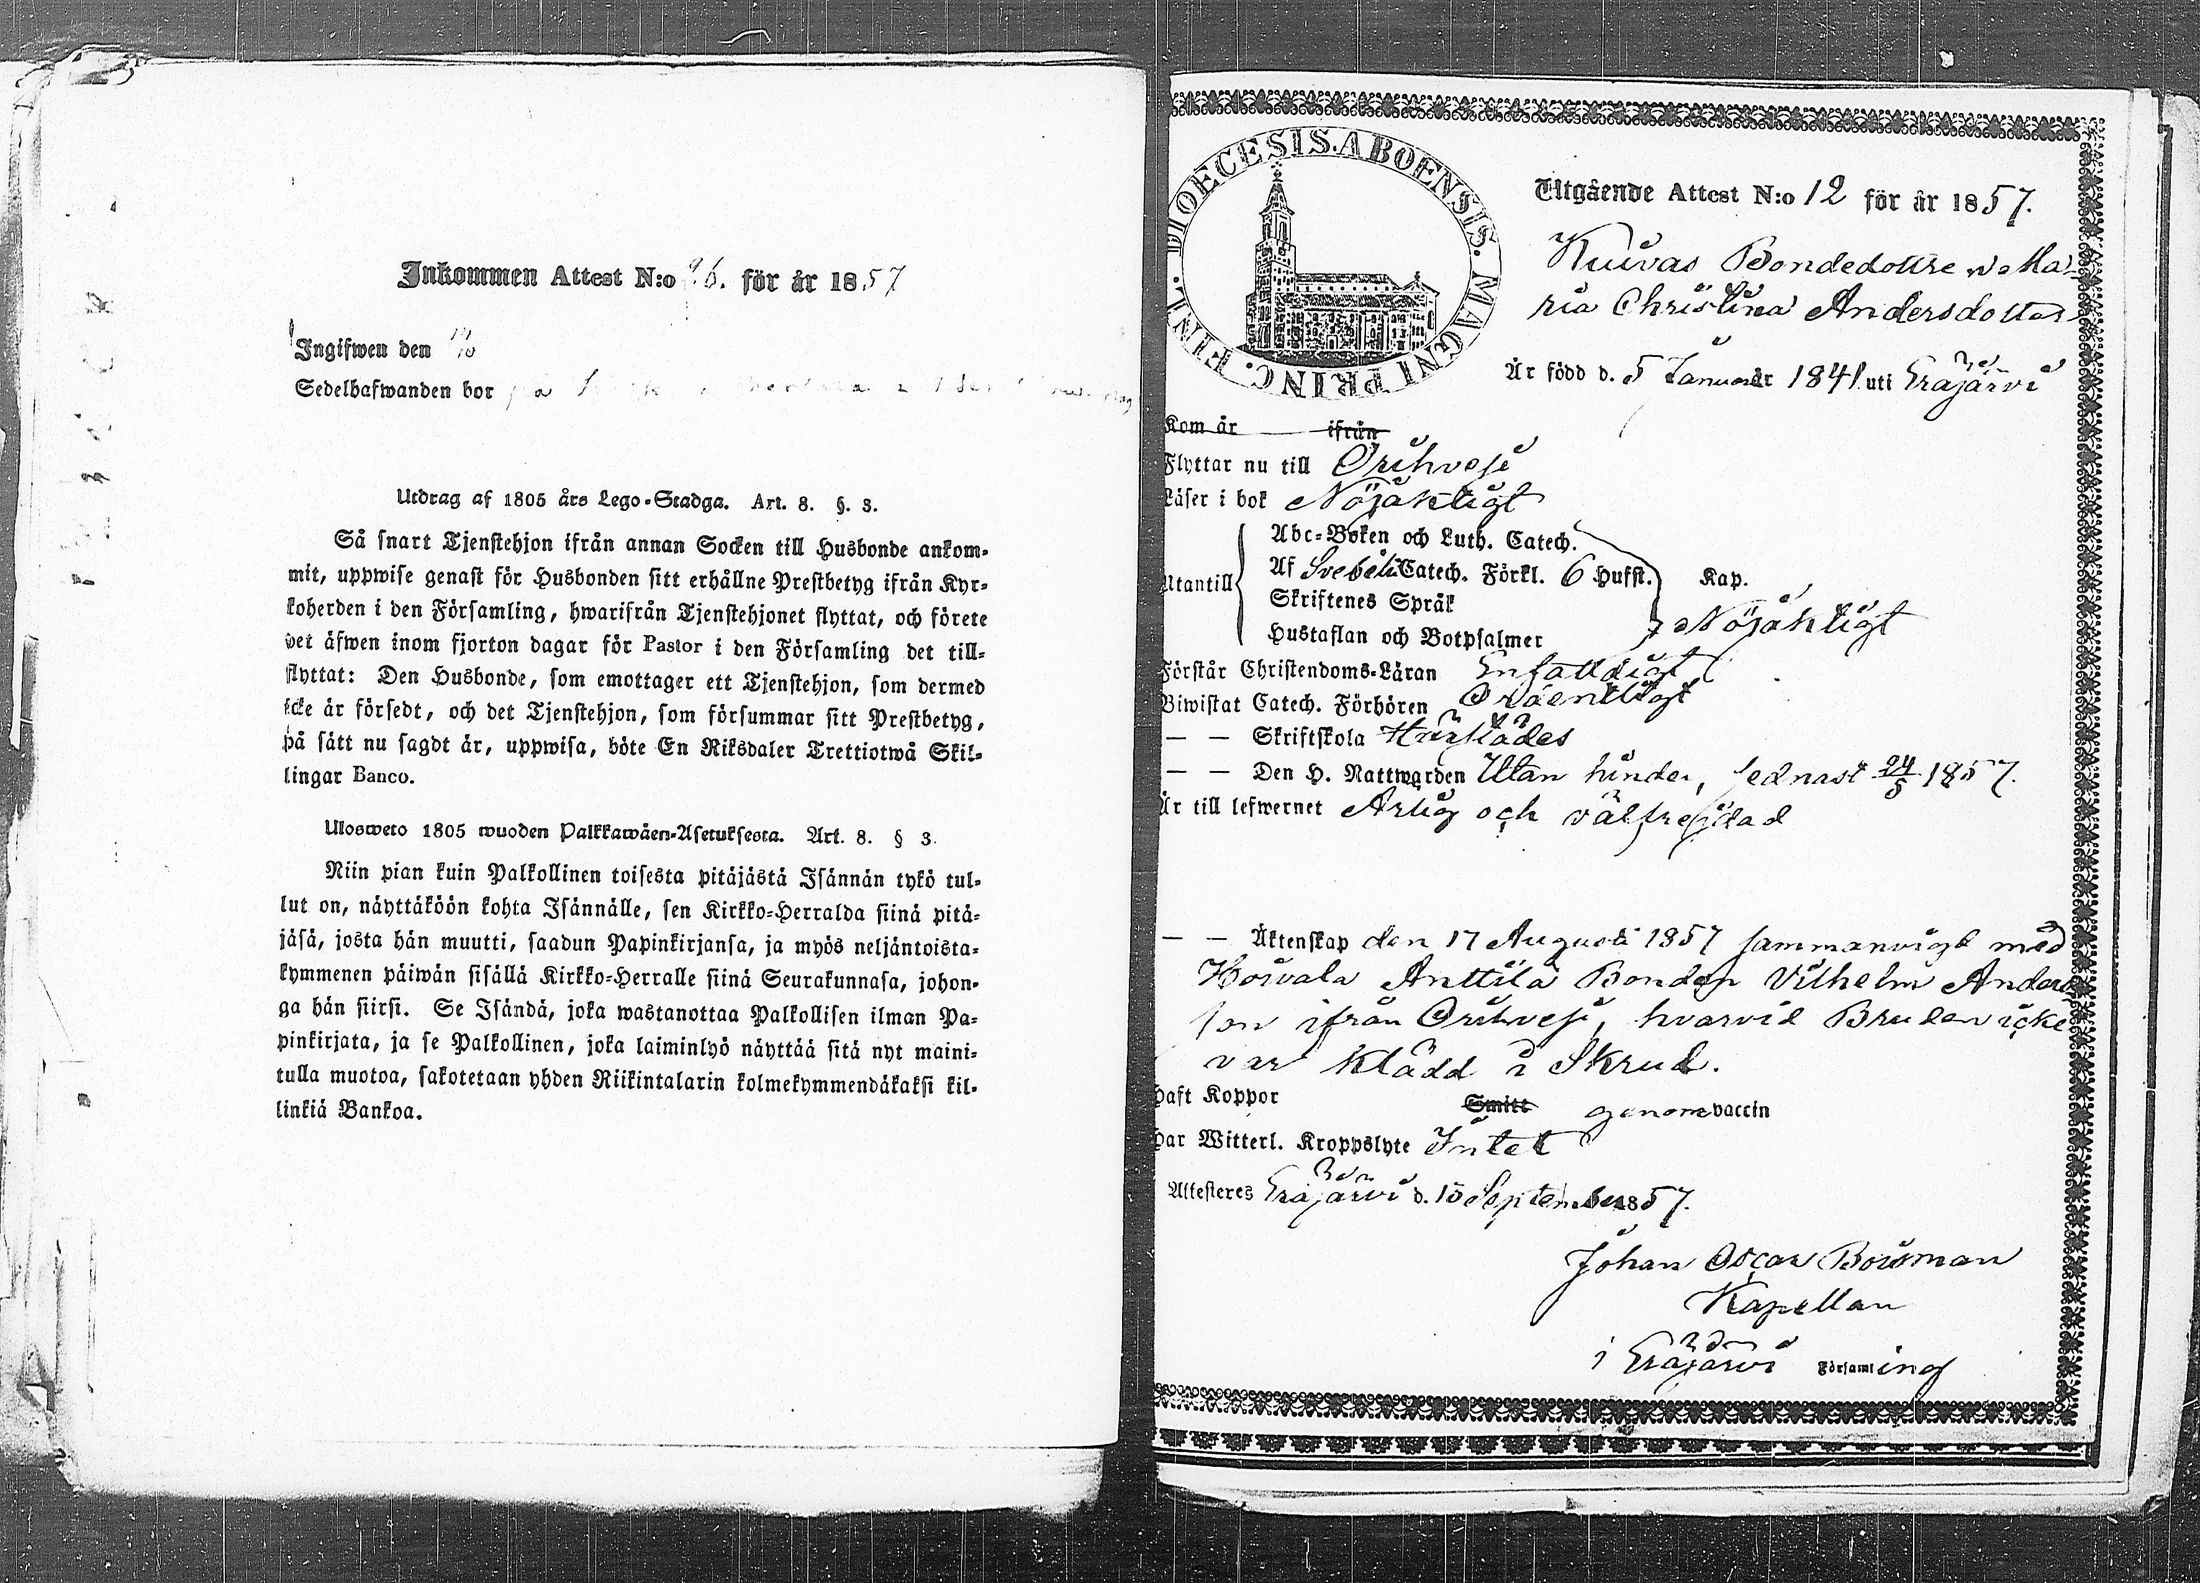 Inkommen Attest N:o 26. för år 1857
Ingifwen den
Sedelhafwanden bor på
Utdrag af 1805 års Lego-Stadga. Art. 8. §. 3.
Så snart Tjenstehjon ifrån annan Socken till Husbonde ankom-
mit, uppwise genast för Husbonden sitt erhållne Prestbetyg ifrån Kyr-
koherden i den Församling, hwarifrån Tjenstehjonet flyttat, och förete
det äfwen inom fjorton dagar för Pastor i den Församling det till-
flyttat: Den Husbonde, som emottager ett Tjenstehjon, som dermed
icke är försedt, och det Tjenstehjon, som försummar sitt Prestbetyg,
på sätt nu sagdt är, uppwisa, böte En Riksdaler Trettiotwå Skil-
lingar Banco.
Ulosweto 1805 wuoden Palkkawäen-Asetuksesta. Art. 8. § 3.
Niin pian kuin Palkollinen toisesta pitäjästä Isännän tykö tul-
lut on, näyttäköön kohta Isännälle, sen Kirkko-Herralda siinä pitä-
jäsä, josta hän muutti, saadun Papinkirjansa, ja myös neljäntoista-
kymmenen päiwän sisällä Kirkko-Herralle siinä Seurakunnasa, johon-
ga hän siirsi. Se Isändä, joka wastanottaa Palkollisen ilman Pa-
pinkirjata, ja se Palkollinen, joka laiminlyö näyttää sitä nyt maini-
tulla muotoa, sakotetaan yhden Riikintalarin kolmekymmendäkaksi kil-
linkiä Bankoa.
DIOECESIS. ABOENSIS. MAGNI PRINC. FINL.
Utgående Attest N:o 12 för år 1857.
Kuivas Bondedottren Ma-
ria Christina Andersdotter
Är född d. 5 Januar år 1841 uti Eräjärvi
Kom år ifrån
Flyttar nu till Orihvesi
Läser i bok Nöjaktigt
Abc-Boken och Luth. Catech.
Utantill Af Svebeli Catech. Förkl. 6 Hufst. Kap.
Skriftenes Språk
Hustaflan och Botpsalmer Nöjaktigt
Förstår Christendoms-Läran Enfaldigt
Biwistat Catech. Förhören Ordentligt
— — Skriftskola
— — Den H. Nattwarden Utan hinder, sednast 24/5 1857.
Är till lefwernet Ärlig och välfrejdad
— — Äktenskap den 17 Augusti 1857 sammanvigd med
Hoivala Anttila Bonden Vilhelm Anders
son ifrån Orihvesi, hvarvid Bruden icke
var klädd i Skrud.
Haft Koppor Smitt genom vaccin
Har Witterl. Kroppslyte Intet
Attesteres Eräjärvi d. 15 September 1857.
Johan Oscar Bonsman
Kapellan
i Eräjärvi Församling